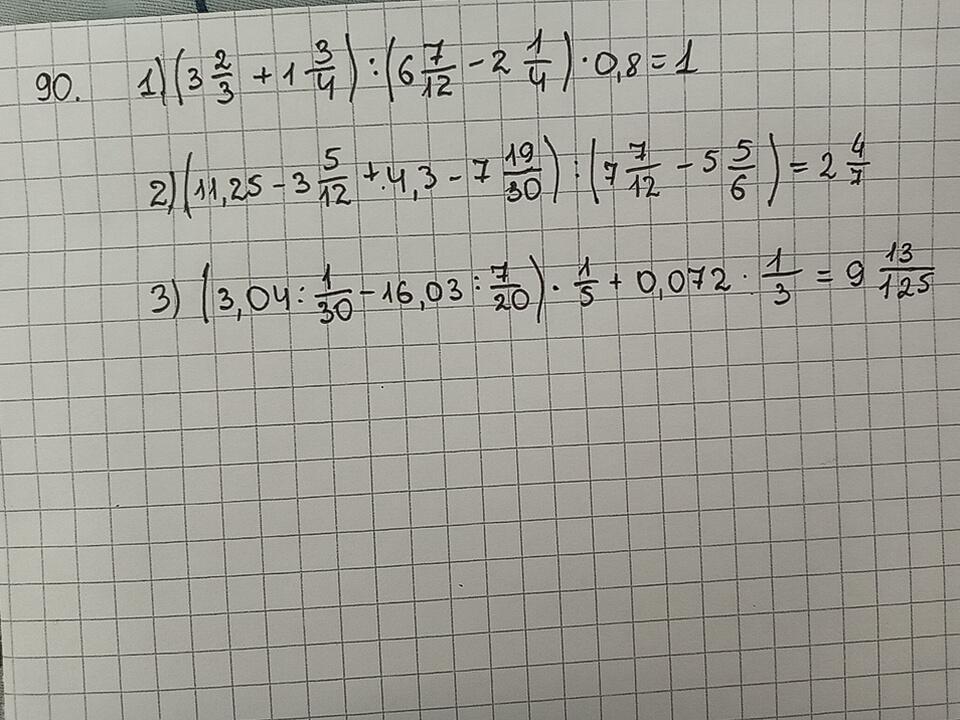 90. 1) (3 2/3 + 1 3/4) : (6 7/12 - 2 1/4) · 0,8 = 1
2) (11,25 - 3 5/12 + 4,3 - 7 19/30) : (7 7/12 - 5 5/6) = 2 4/7
3) (3,04 : 1/30 - 16,03 : 7/20) · 1/5 + 0,072 · 1/3 = 9 13/125